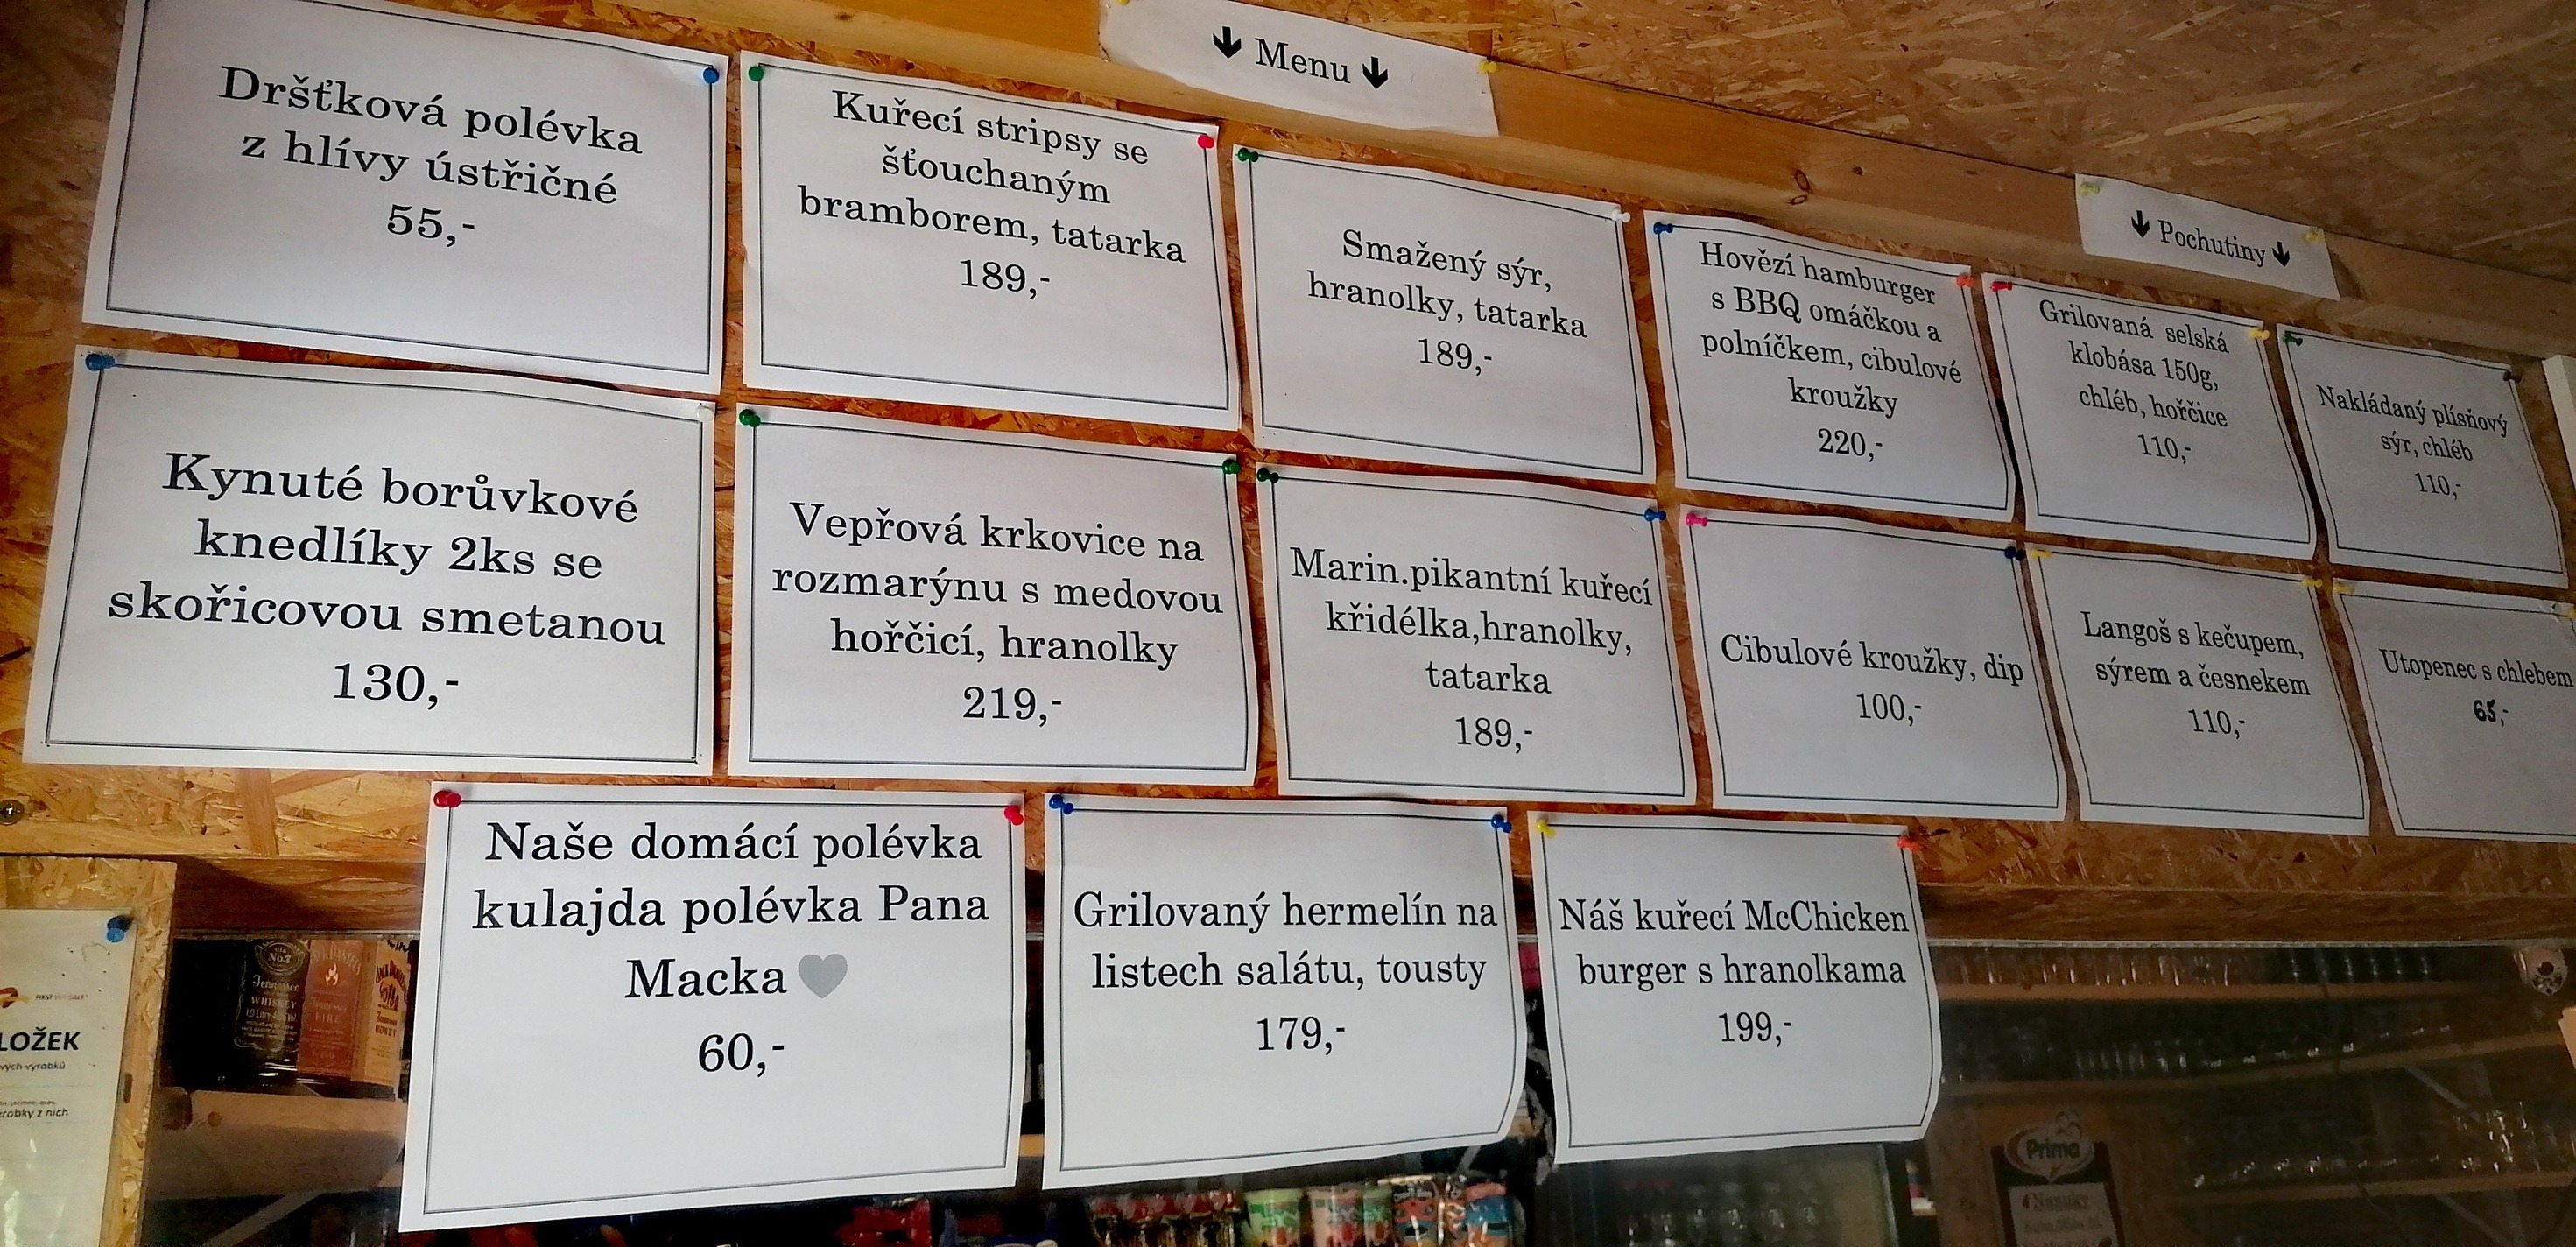 ↓ Menu ↓
↓ Pochutiny ↓
Dršťková polévka
z hlívy ústřičné
55,-
Kuřecí stripsy se
šťouchaným
bramborem, tatarka
189,-
Smažený sýr,
hranolky, tatarka
189,-
Hovězí hamburger
s BBQ omáčkou a
polníčkem, cibulové
kroužky
220,-
Grilovaná selská
klobása 150g,
chléb, hořčice
110,-
Nakládaný plísňový
sýr, chléb
110,-
Kynuté borůvkové
knedlíky 2ks se
skořicovou smetanou
130,-
Vepřová krkovice na
rozmarýnu s medovou
hořčicí, hranolky
219,-
Marin.pikantní kuřecí
křidélka,hranolky,
tatarka
189,-
Cibulové kroužky, dip
100,-
Langoš s kečupem,
sýrem a česnekem
110,-
Utopenec s chlebem
65,-
Naše domácí polévka
kulajda polévka Pana
Macka
60,-
Grilovaný hermelín na
listech salátu, tousty
179,-
Náš kuřecí McChicken
burger s hranolkama
199,-
No.7
Tennessee
WHISKEY
LOŽEK
ových výrobků
robky z nich
Prima